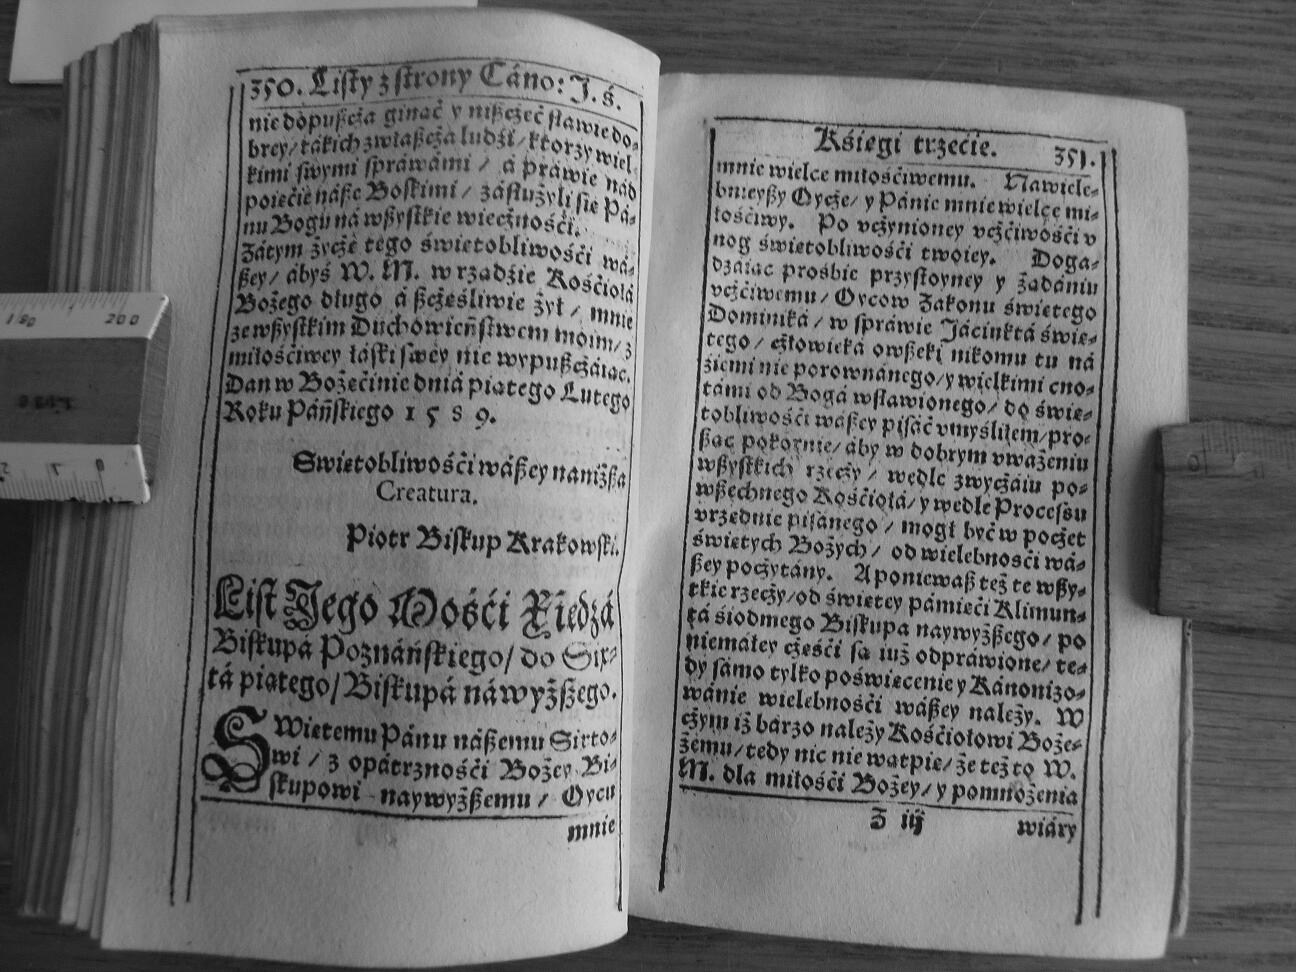 350. Listy z strony Cáno: J. ś.
nie dopußcża ginąć y nißcżeć sławie do-
brey/ tákich zwłaßcżá ludźi/ ktorzy wiel-
kimi swymi spráwámi / á práwie nád
poięćie náße Boskimi / zásłużyli się Pá-
nu Bogu ná wßystkie wiecżnośći.
Zátym życżę tego świetobliwośći wá-
ßey/ ábyś W. M. w rządźie Kośćiołá
Bożego długo á ßcżęśliwie żył / mnie
ze wßystkim Duchowieństwem moim/ z
miłośćiwey łáski swey nie wypußcżáiąc.
Dan w Bożęćinie dniá piątego Lutego
Roku Páńskiego 1589.
Swiętobliwośći wáßey naniżßa
Creatura.
Piotr Biskup Krakowski.
List Jego Mośći Xiędzá
Biskupá Poznáńskiego/ do Six-
tá piątego/ Biskupá náwyżßego.
SWiętemu Pánu náßemu Sixto-
wi / z opátrznośći Bożey Bi-
skupowi naywyżßemu / Oycu
mnie
Kśięgi trzećie. 351.
mnie wielce miłośćiwemu. Nawiele-
bnieyßy Oycże/ y Pánie mnie wielce mi-
łośćiwy. Po vcżynioney vcżćiwośći v
nog świętobliwośći twoiey. Doga-
dzáiąc prośbie przystoyney y żądániu
vcżćiwemu/ Oycow Zakonu świętego
Dominiká / w spráwie Jácinktá świę-
tego / cżłowieká owßeki nikomu tu ná
źiemi nie porownánego/ y wielkimi cno-
támi od Bogá wsławionego/ do świę-
tobliwośći wáßey pisáć vmyśliłem/ pro-
ßąc pokornie/ áby w dobrym vważeniu
wßystkich rzecży / wedle zwycżáiu po-
wßechnego Kośćiołá/ y wedle Processu
vrzędnie pisánego / mogł być w pocżet
świętych Bożych / od wielebnośći wá-
ßey pocżytány. A ponieważ też te wßy-
tkie rzecży/ od świętey pámięći Klimun-
tá śiodmego Biskupa naywyżßego/ po
niemáłey cżęśći są iuż odpráwione/ te-
dy sámo tylko poświęcenie y Kánonizo-
wánie wielebnośći wáßey należy. W
cżym iż bárzo należy Kośćiołowi Boże-
żemu/ tedy nic nie wątpię/ że też to W.
M. dla miłośći Bożey/ y pomnożenia
Z iij wiáry